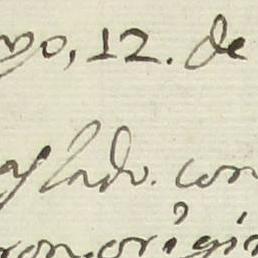 go, 12. de
aslado. con
ron. origin